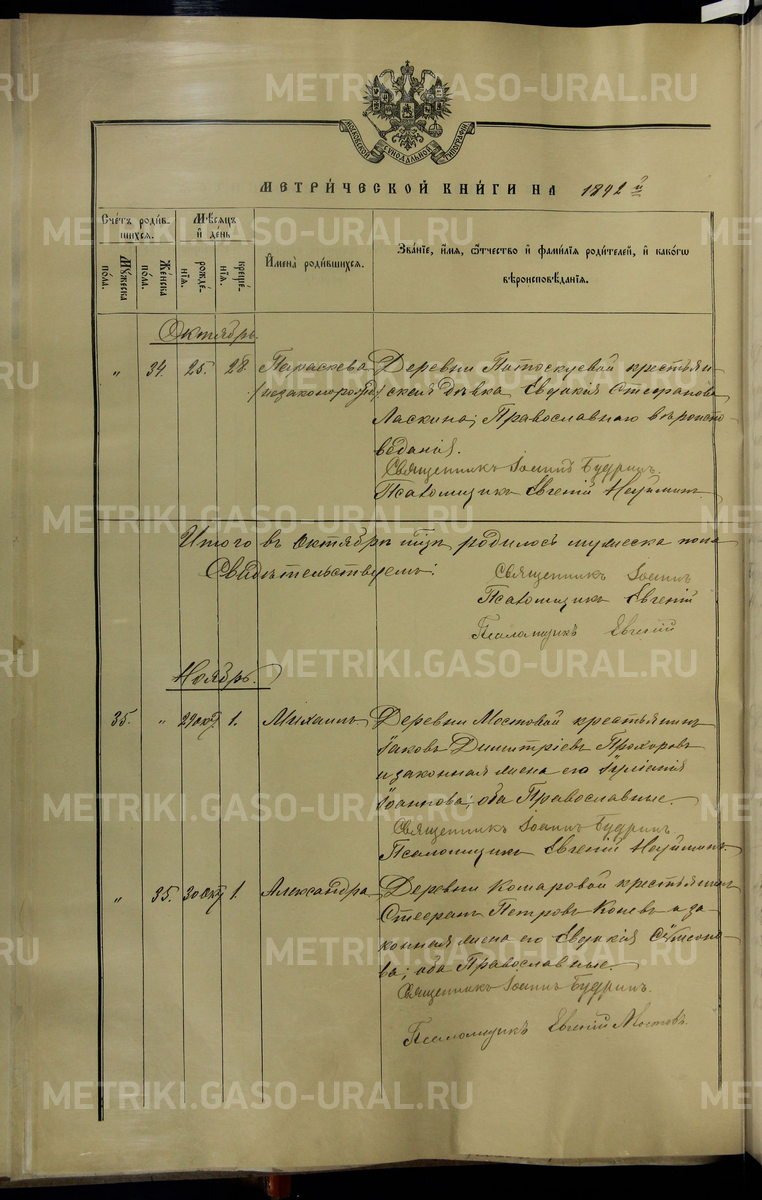 МОСКОВСКОЙ СѴНОДАЛЬНОЙ ТИПОГРАФІИ
МЕТРИ́ЧЕСКОЙ КНИ́ГИ НА 1892 й
Сче́тъ роди́вшихсѧ.
Мѣ́сѧцъ и҆ де́нь
Мꙋ́жеска по́ла.
Же́нска по́ла.
рожде́нїѧ.
креще́нїѧ.
И҆мена̀ роди́вшихсѧ.
Зва́нїе, и҆́мѧ, ѻ҆́тчество и҆ фами́лїѧ роди́телей, и҆ како́гѡ вѣроисповѣ́данїѧ.
Октябрь.
„ 34. 25. 28. Параскева Деревни Патоскуевой крестьян-
/незаконорожд/ ская дѣвка Евдокія Стефанова
Ласкина; Православнаго вѣроиспо-
вѣданія.
Священникъ Іоаннъ Будринъ.
Псаломщикъ Евгеній
Итого въ Октябрѣ родилось мужеска пола
Свидѣтельствуемъ: Священникъ Іоаннъ
Псаломщикъ Евгеній
Псаломщикъ Евгеній
Ноябрь.
35. „ 29 окт. 1. Михаилъ Деревни Мостовой крестьянинъ
Іаковъ Димитріевъ Прохоровъ
и законная жена его Іуліанія
Іоаннова; оба Православные.
Священникъ Іоаннъ Будринъ
Псаломщикъ Евгеній
„ 35. 30 окт. 1. Александра Деревни Комаровой крестьянинъ
Стефанъ Петровъ Коневъ и за-
конная жена его Евдокія Сѵмеоно-
ва; оба Православные.
Священникъ Іоаннъ Будринъ.
Псаломщикъ Евгеній
METRIKI.GASO-URAL.RU